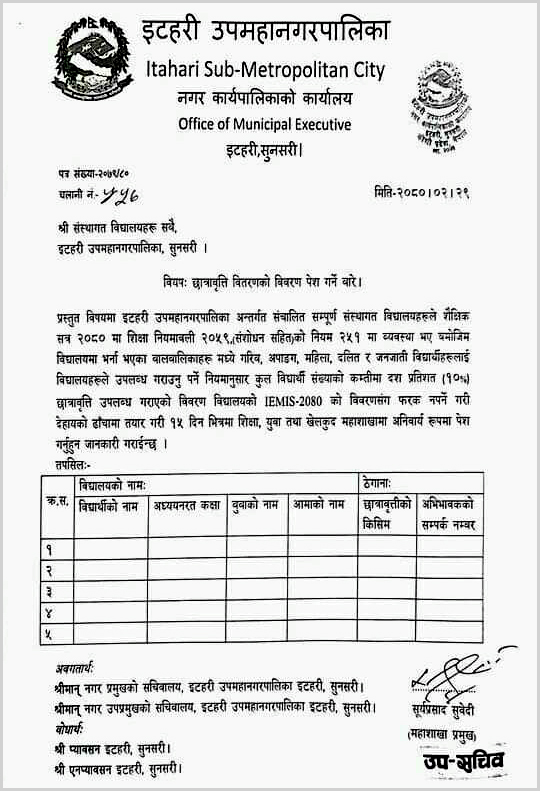 इटहरी उपमहानगरपालिका
Itahari Sub-Metropolitan City
नगर कार्यपालिकाको कार्यालय
Office of Municipal Executive
इटहरी,सुनसरी।
पत्र संख्या-२०७९/८०
चलानी नं.- ५५६
मिति-२०८०।०२।२९
श्री संस्थागत विद्यालयहरू सवै,
इटहरी उपमहानगरपालिका, सुनसरी ।
विषयः छात्रावृत्ति वितरणको विवरण पेश गर्ने बारे।
प्रस्तुत विषयमा इटहरी उपमहानगरपालिका अन्तर्गत संचालित सम्पूर्ण संस्थागत विद्यालयहरूले शैक्षिक
सत्र २०८० मा शिक्षा नियमावली २०५९,(संशोधन सहित)को नियम २५१ मा व्यवस्था भए बमोजिम
विद्यालयमा भर्ना भएका वालवालिकाहरू मध्ये गरिव, अपाङग, महिला, दलित र जनजाती विद्यार्थीहरूलाई
विद्यालयहरूले उपलब्ध गराउनु पर्ने नियमानुसार कुल विद्यार्थी संख्याको कम्तीमा दश प्रतिशत (१०%)
छात्रावृत्ति उपलब्ध गराएको विवरण विद्यालयको IEMIS-2080 को विवरणसंग फरक नपर्ने गरी
देहायको ढाँचामा तयार गरी १५ दिन भित्रमा शिक्षा, युवा तथा खेलकुद महाशाखामा अनिवार्य रूपमा पेश
गर्नुहुन जानकारी गराईन्छ ।
तपसिलः-
क्र.स. विद्यालयको नामः ठेगानाः
विद्यार्थीको नाम अध्ययनरत कक्षा वुवाको नाम आमाको नाम छात्रावृत्तीको किसिम अभिभावकको सम्पर्क नम्बर
१
२
३
४
५
अवगतार्थः
श्रीमान् नगर प्रमुखको सचिवालय, इटहरी उपमहानगरपालिका इटहरी, सुनसरी।
श्रीमान् नगर उपप्रमुखको सचिवालय, इटहरी उपमहानगरपालिका इटहरी, सुनसरी।
वोधार्थः
श्री प्यावसन इटहरी, सुनसरी।
श्री एनप्यावसन इटहरी, सुनसरी।
सूर्यप्रसाद सुवेदी
(महाशाखा प्रमुख)
उप-सचिव